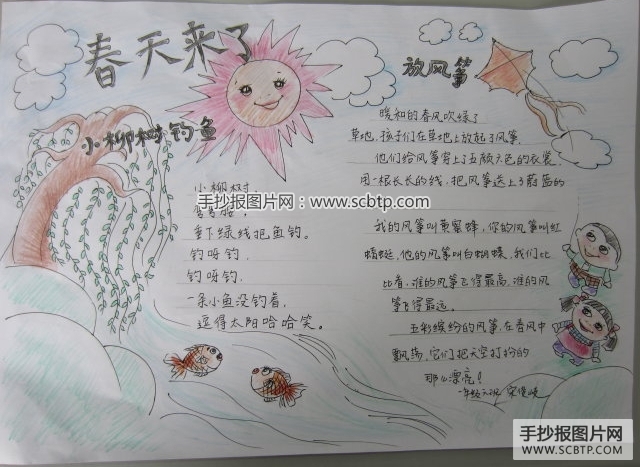 春天来了
小柳树钓鱼
小柳树,
弯弯腰,
垂下绿线把鱼钓。
钓呀钓,
钓呀钓,
一条小鱼没钓着,
逗得太阳哈哈笑。
放风筝
暖和的春风吹绿了
草地,孩们在草地上放起了风筝。
他们给风筝穿上了五颜六色的衣裳
用一根长长的线,把风筝送上了蔚蓝的
我的风筝叫黄蜜蜂,你的风筝叫红
蜻蜓,他的风筝叫白蝴蝶,我们比一
比看,谁的风筝飞得最高,谁的风
筝飞得最远。
五彩缤纷的风筝,在春风中
飘荡,它们把天空打扮的
那么漂亮!
手抄报图片网:www.scbtp.com
手抄报图片网
SCBTP.COM